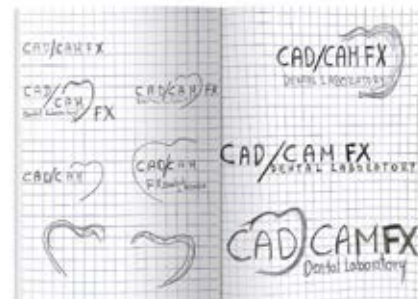 CAD/CAM FX
CAD/CAM FX
Dental Laboratory
CAD/CAM FX
CAD/CAM
CAD/CAM
FX
CAD/CAM FX
DENTAL LABORATORY
CAD/CAM FX
DENTAL LABORATORY
CAD CAM FX
Dental Laboratory